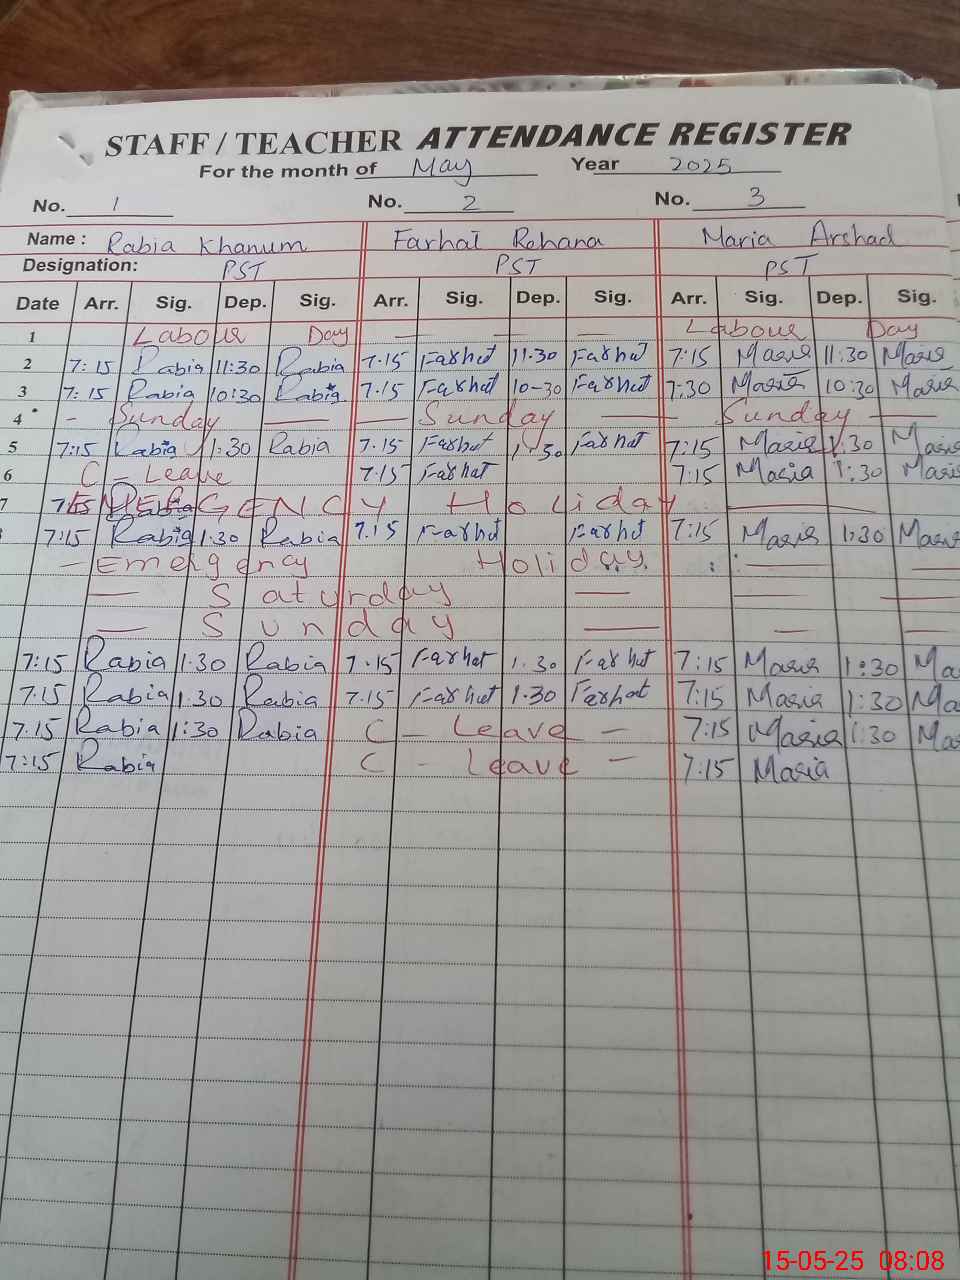 STAFF / TEACHER ATTENDANCE REGISTER
For the month of May Year 2025
No. 1 No. 2 No. 3
Name : Rabia Khanum Farhat Rehana Maria Arshad
Designation: PST PST PST
Date Arr. Sig. Dep. Sig. Arr. Sig. Dep. Sig. Arr. Sig. Dep. Sig.
1 Labour Day — — — Labour Day
2 7:15 Rabia 11:30 Rabia 7.15 Farhat 11.30 Farhat 7:15 Maria 11:30 Maria
3 7:15 Rabia 10:30 Rabia 7.15 Farhat 10-30 Farhat 7:30 Maria 10:30 Maria
4 - Sunday — — Sunday — Sunday —
5 7:15 Rabia 1:30 Rabia 7.15 Farhat 1.30 Farhat 7:15 Maria 1:30 Maria
6 C - Leave 7.15 Farhat 7:15 Maria 1:30 Maria
7 7:15 EMERGENCY Holiday —
7:15 Rabia 1:30 Rabia 7.15 Farhat Farhat 7:15 Maria 1:30 Maria
- Emergency Holiday — —
— Saturday — — —
— Sunday — — —
7:15 Rabia 1.30 Rabia 7.15 Farhat 1.30 Farhat 7:15 Maria 1:30 Ma
7.15 Rabia 1.30 Rabia 7.15 Farhat 1.30 Farhat 7:15 Maria 1:30 Ma
7.15 Rabia 1:30 Rabia C - Leave - 7:15 Maria 1:30 Ma
7:15 Rabia C - Leave - 7:15 Maria
15-05-25 08:08